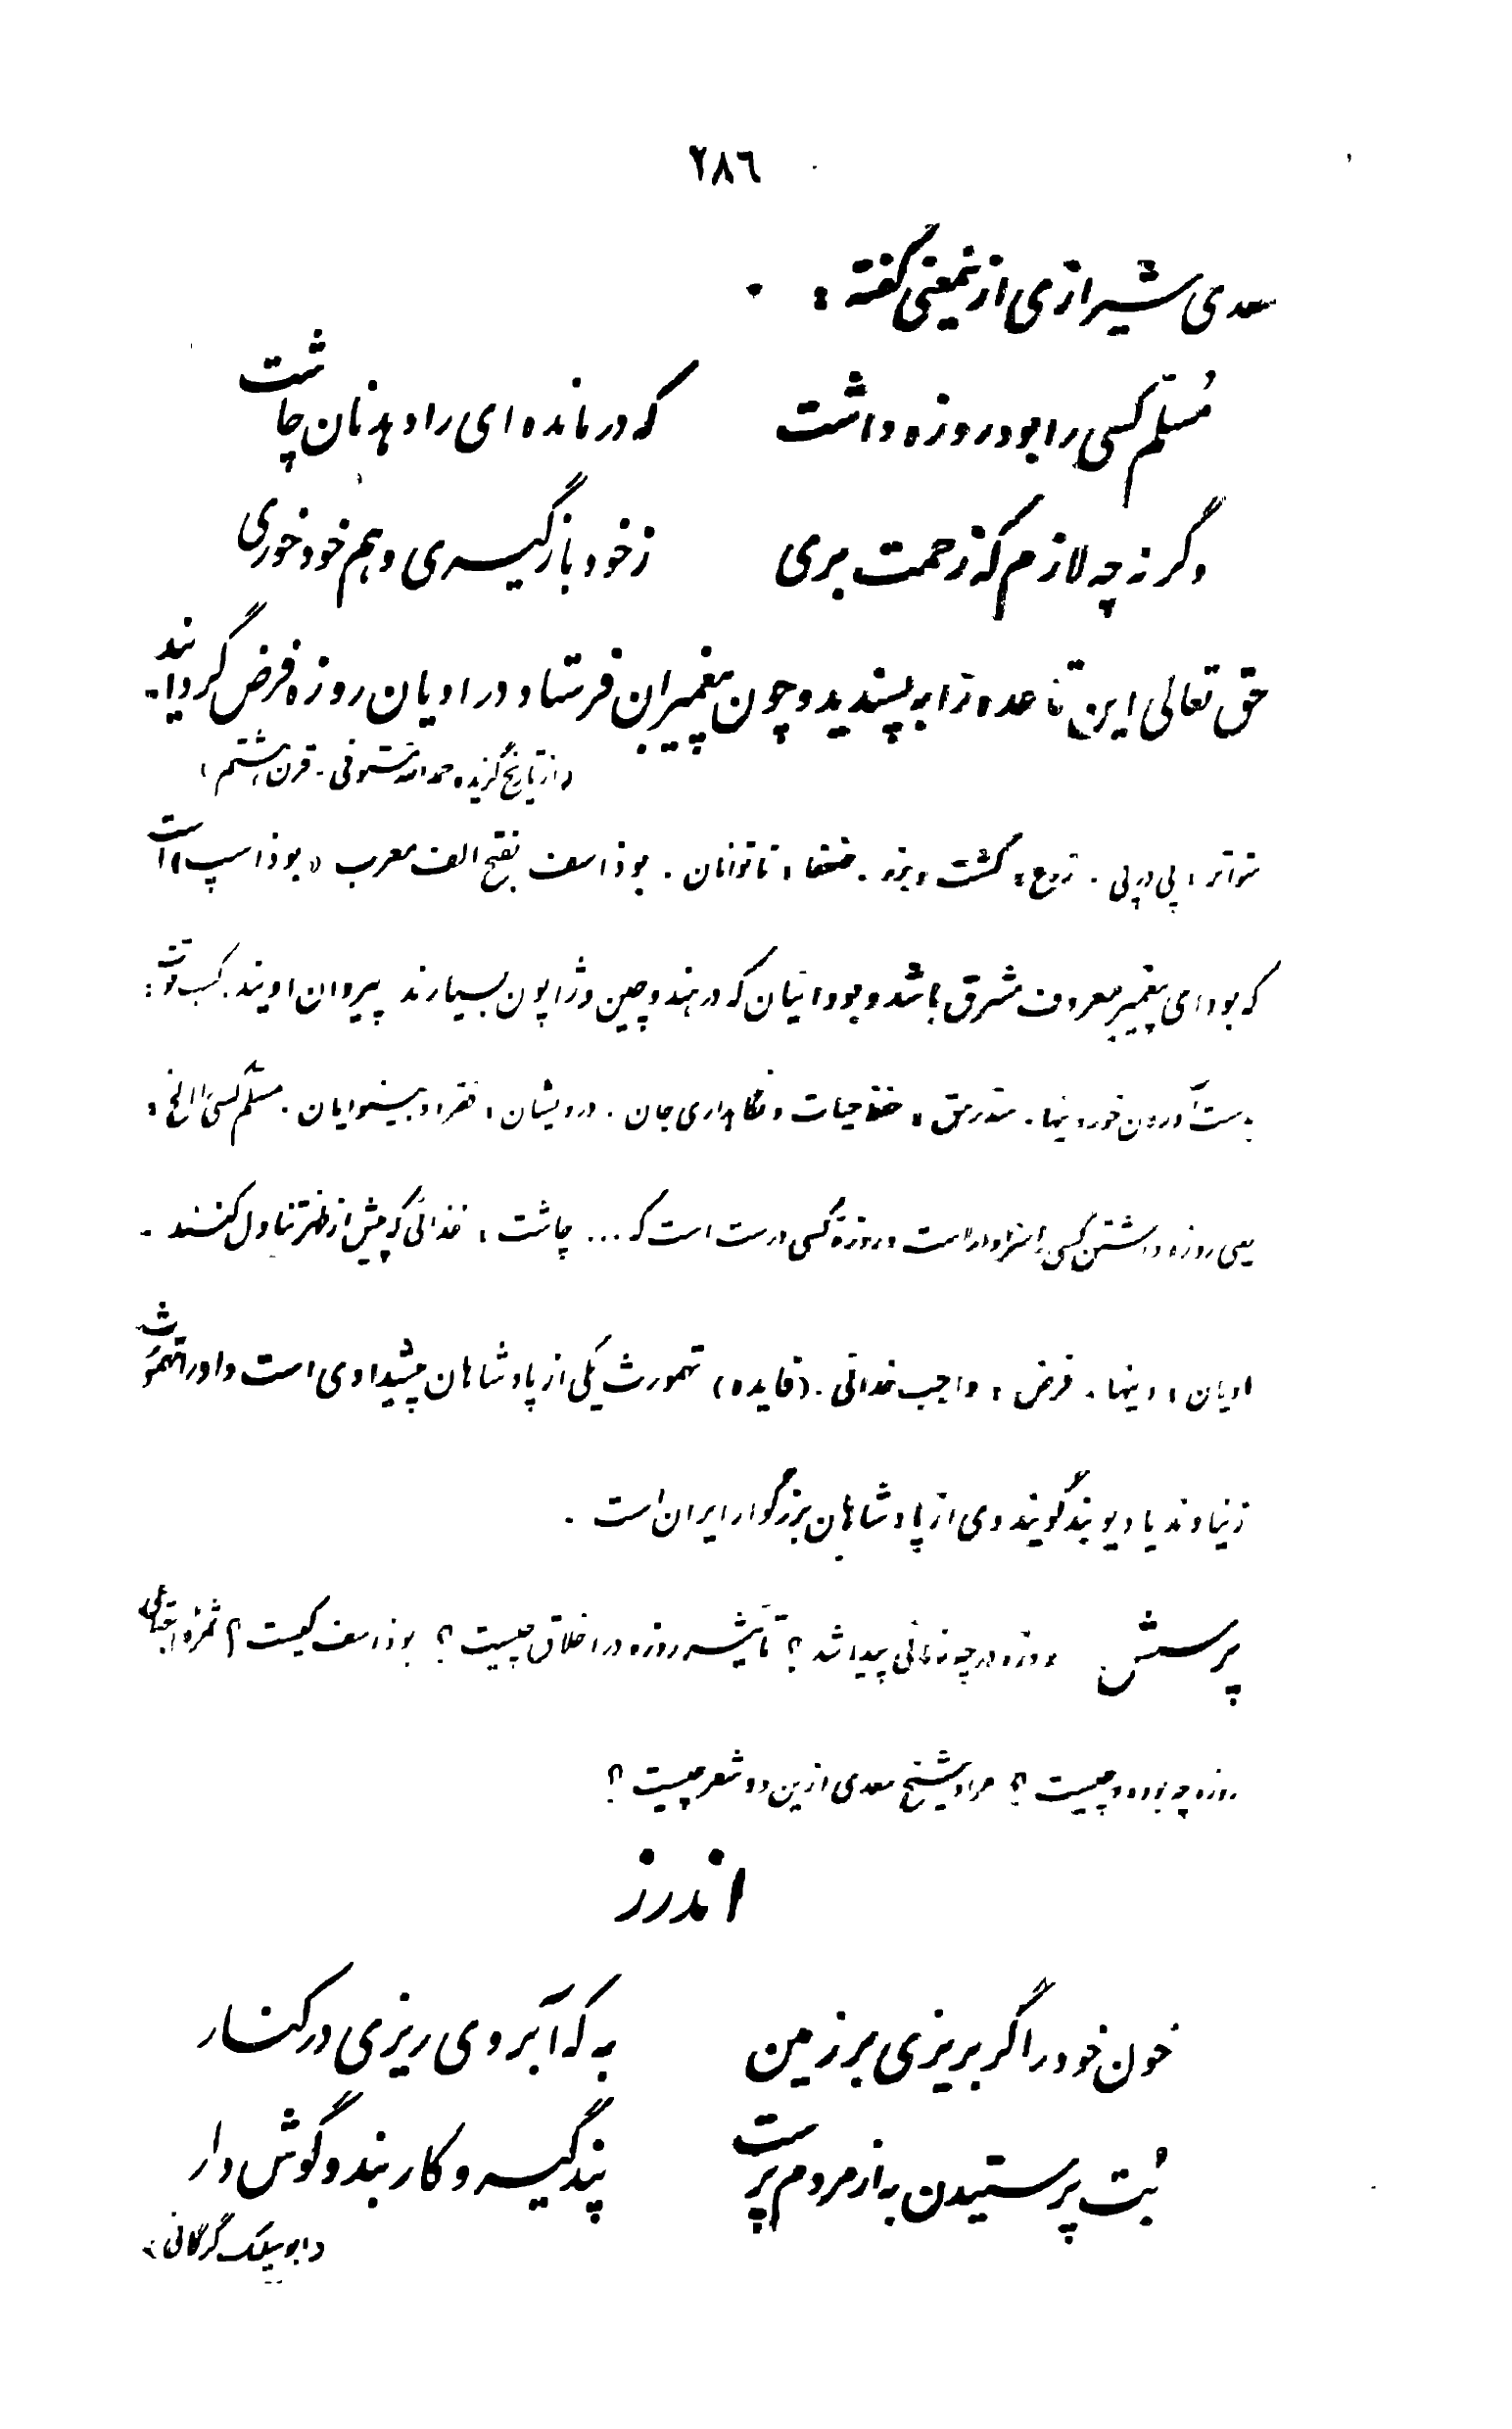 ۲۸۶
سعدی شیرازی ازینمعنی گفته :
مُسلّم کسی را بود روزه داشت که درمانده‌ای را دهد نان چاشت
وگرنه چه لازم که زحمت بری زخود بازگیری و هم خود خوری
حق تعالی این قاعده را به پسندید و چون پیغمبران فرستاد در ادیان روزه فرض گردانید.
(از تاریخ گزیده حمدالله مستوفی - قرن هشتم)
متواتر : پی در پی . زرع : کشت و برز . ضعفا : ناتوانان . بوذاسف بفتح الف معرب «بوذاسپ» است
که بودای پیغمبر معروف مشرق باشد و بودائیان که در هند و چین و ژاپون بسیارند پیروان اویند . کسب قوت :
بدست آوردن خوردنیها . سدرمق : حفظ حیات و نگاهداری جان . درویشان : فقرا و بینوایان . مسلّم کسی الخ :
یعنی روزه داشتن کسی را سزاوار است و روزهٔ کسی درست است که ... چاشت : غذائی که پیش از ظهر تناول کنند .
ادیان : دینها . فرض : واجب خدائی . (فایده) تهمورث یکی از پادشاهان پیشدادی است و او را تهمورث
زیناوند یا دیو بند گویند وی از پادشاهان بزرگوار ایران است .
پرسش روزه در چه زمانی پیدا شد ؟ تأثیر روزه در اخلاق چیست ؟ بوذاسف کیست ؟ ثمرهٔ اجتماعی
روزه چه بوده و چیست ؟ مراد شیخ سعدی ازین دو شعر چیست ؟
اندرز
خون خود را گر بریزی بر زمین به که آبروی ریزی در کنار
بُت پرستیدن به از مردم پرست پند گیر و کار بند و گوش دار
(ابوسلیک گرگانی)